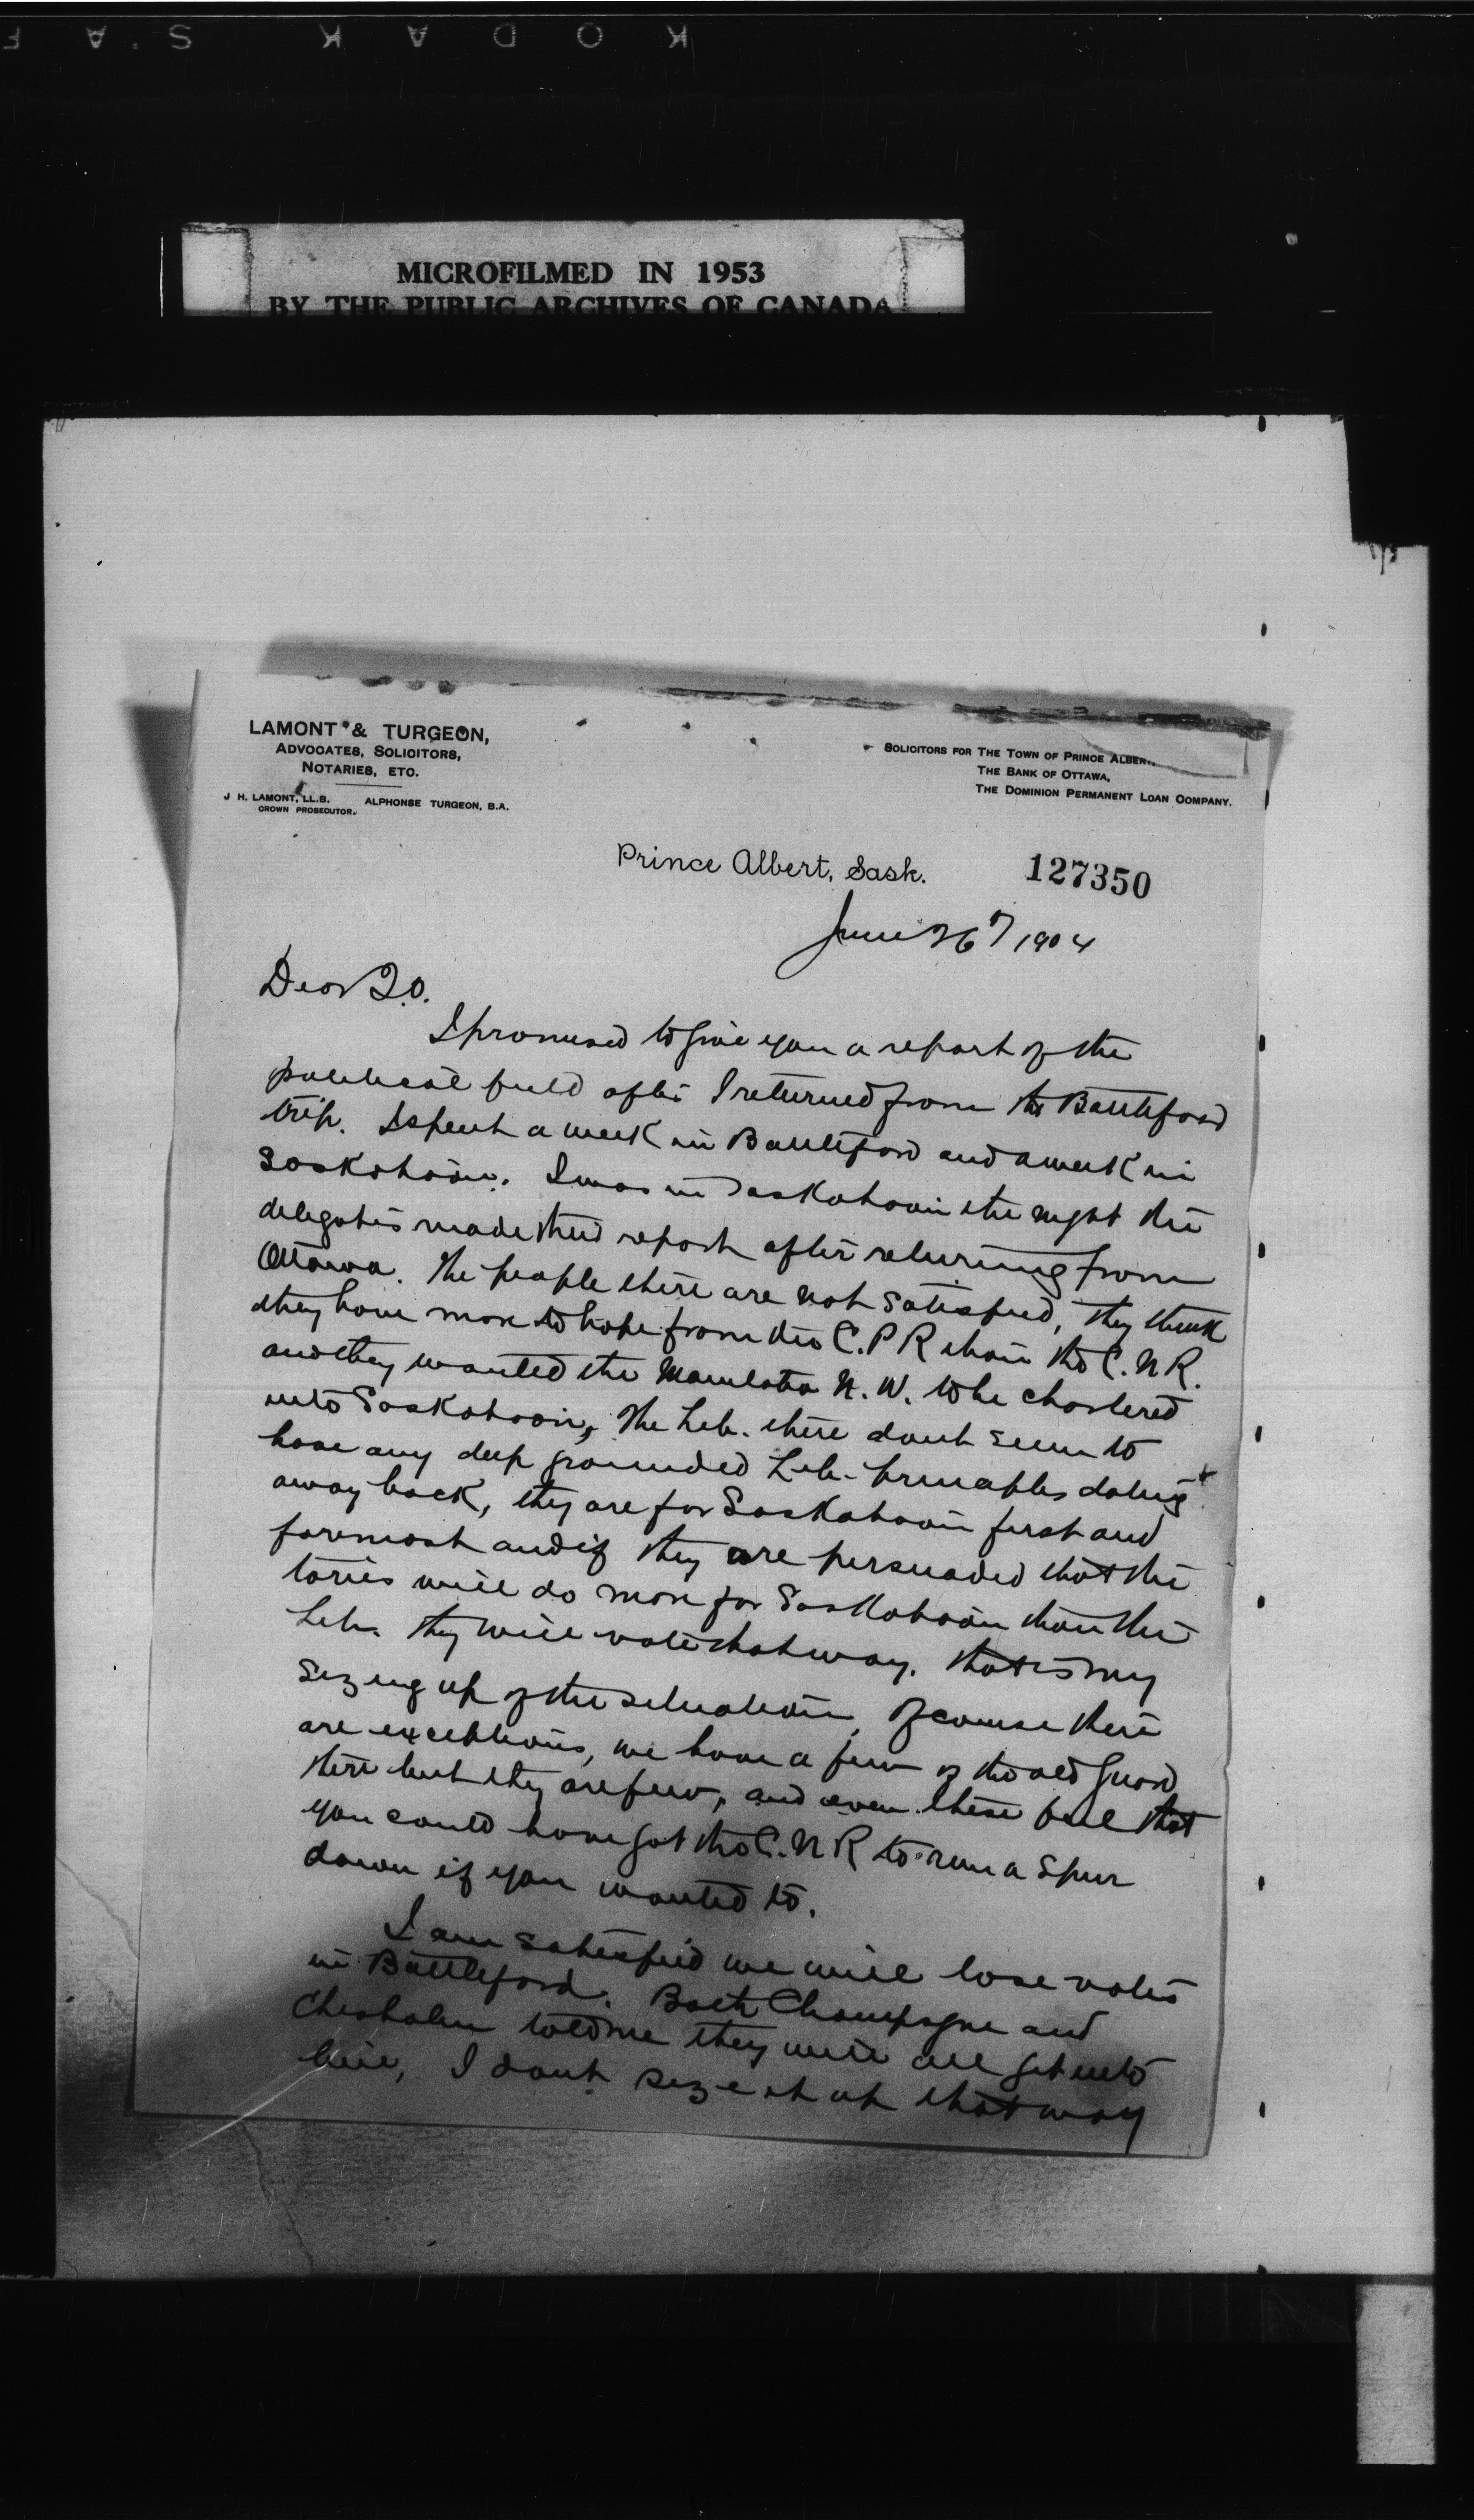 KODAK SAF
MICROFILMED IN 1953
BY THE PUBLIC ARCHIVES OF CANADA
LAMONT & TURGEON,
ADVOCATES, SOLICITORS,
NOTARIES, ETC.
J H. LAMONT, LL.B. ALPHONSE TURGEON, B.A.
CROWN PROSECUTOR.
SOLICITORS FOR THE TOWN OF PRINCE ALBERT,
THE BANK OF OTTAWA,
THE DOMINION PERMANENT LOAN COMPANY.
Prince Albert, Sask. 127350
June 26 1904
Dear
I promised to give you a report of the
political field after I returned from the Battleford
trip. I spent a week in Battleford and a week in
Saskatoon. I was in Saskatoon the night the
delegates made their report after returning from
Ottawa. The people there are not satisfied, they think
they have more to hope from the C.P R than the C. N R.
and they wanted the Manitoba N. W. to be chartered
into Saskatoon, The Lib. there dont seem to
have any deep grounded Lib- principles dating
away back, they are for Saskatoon first and
foremost and if they are persuaded that the
tories will do more for Saskatoon than the
Lib. they will vote that way. that is my
sizing up of the situation, Of course there
are exceptions, we have a few of the old guard
there but they are few, and even these feel that
you could have got the C. N R to run a spur
down if you wanted to.
I am satisfied we will lose votes
in Battleford. Both Champagne and
Chisholm told me they will all get into
line, I dont size it up that way